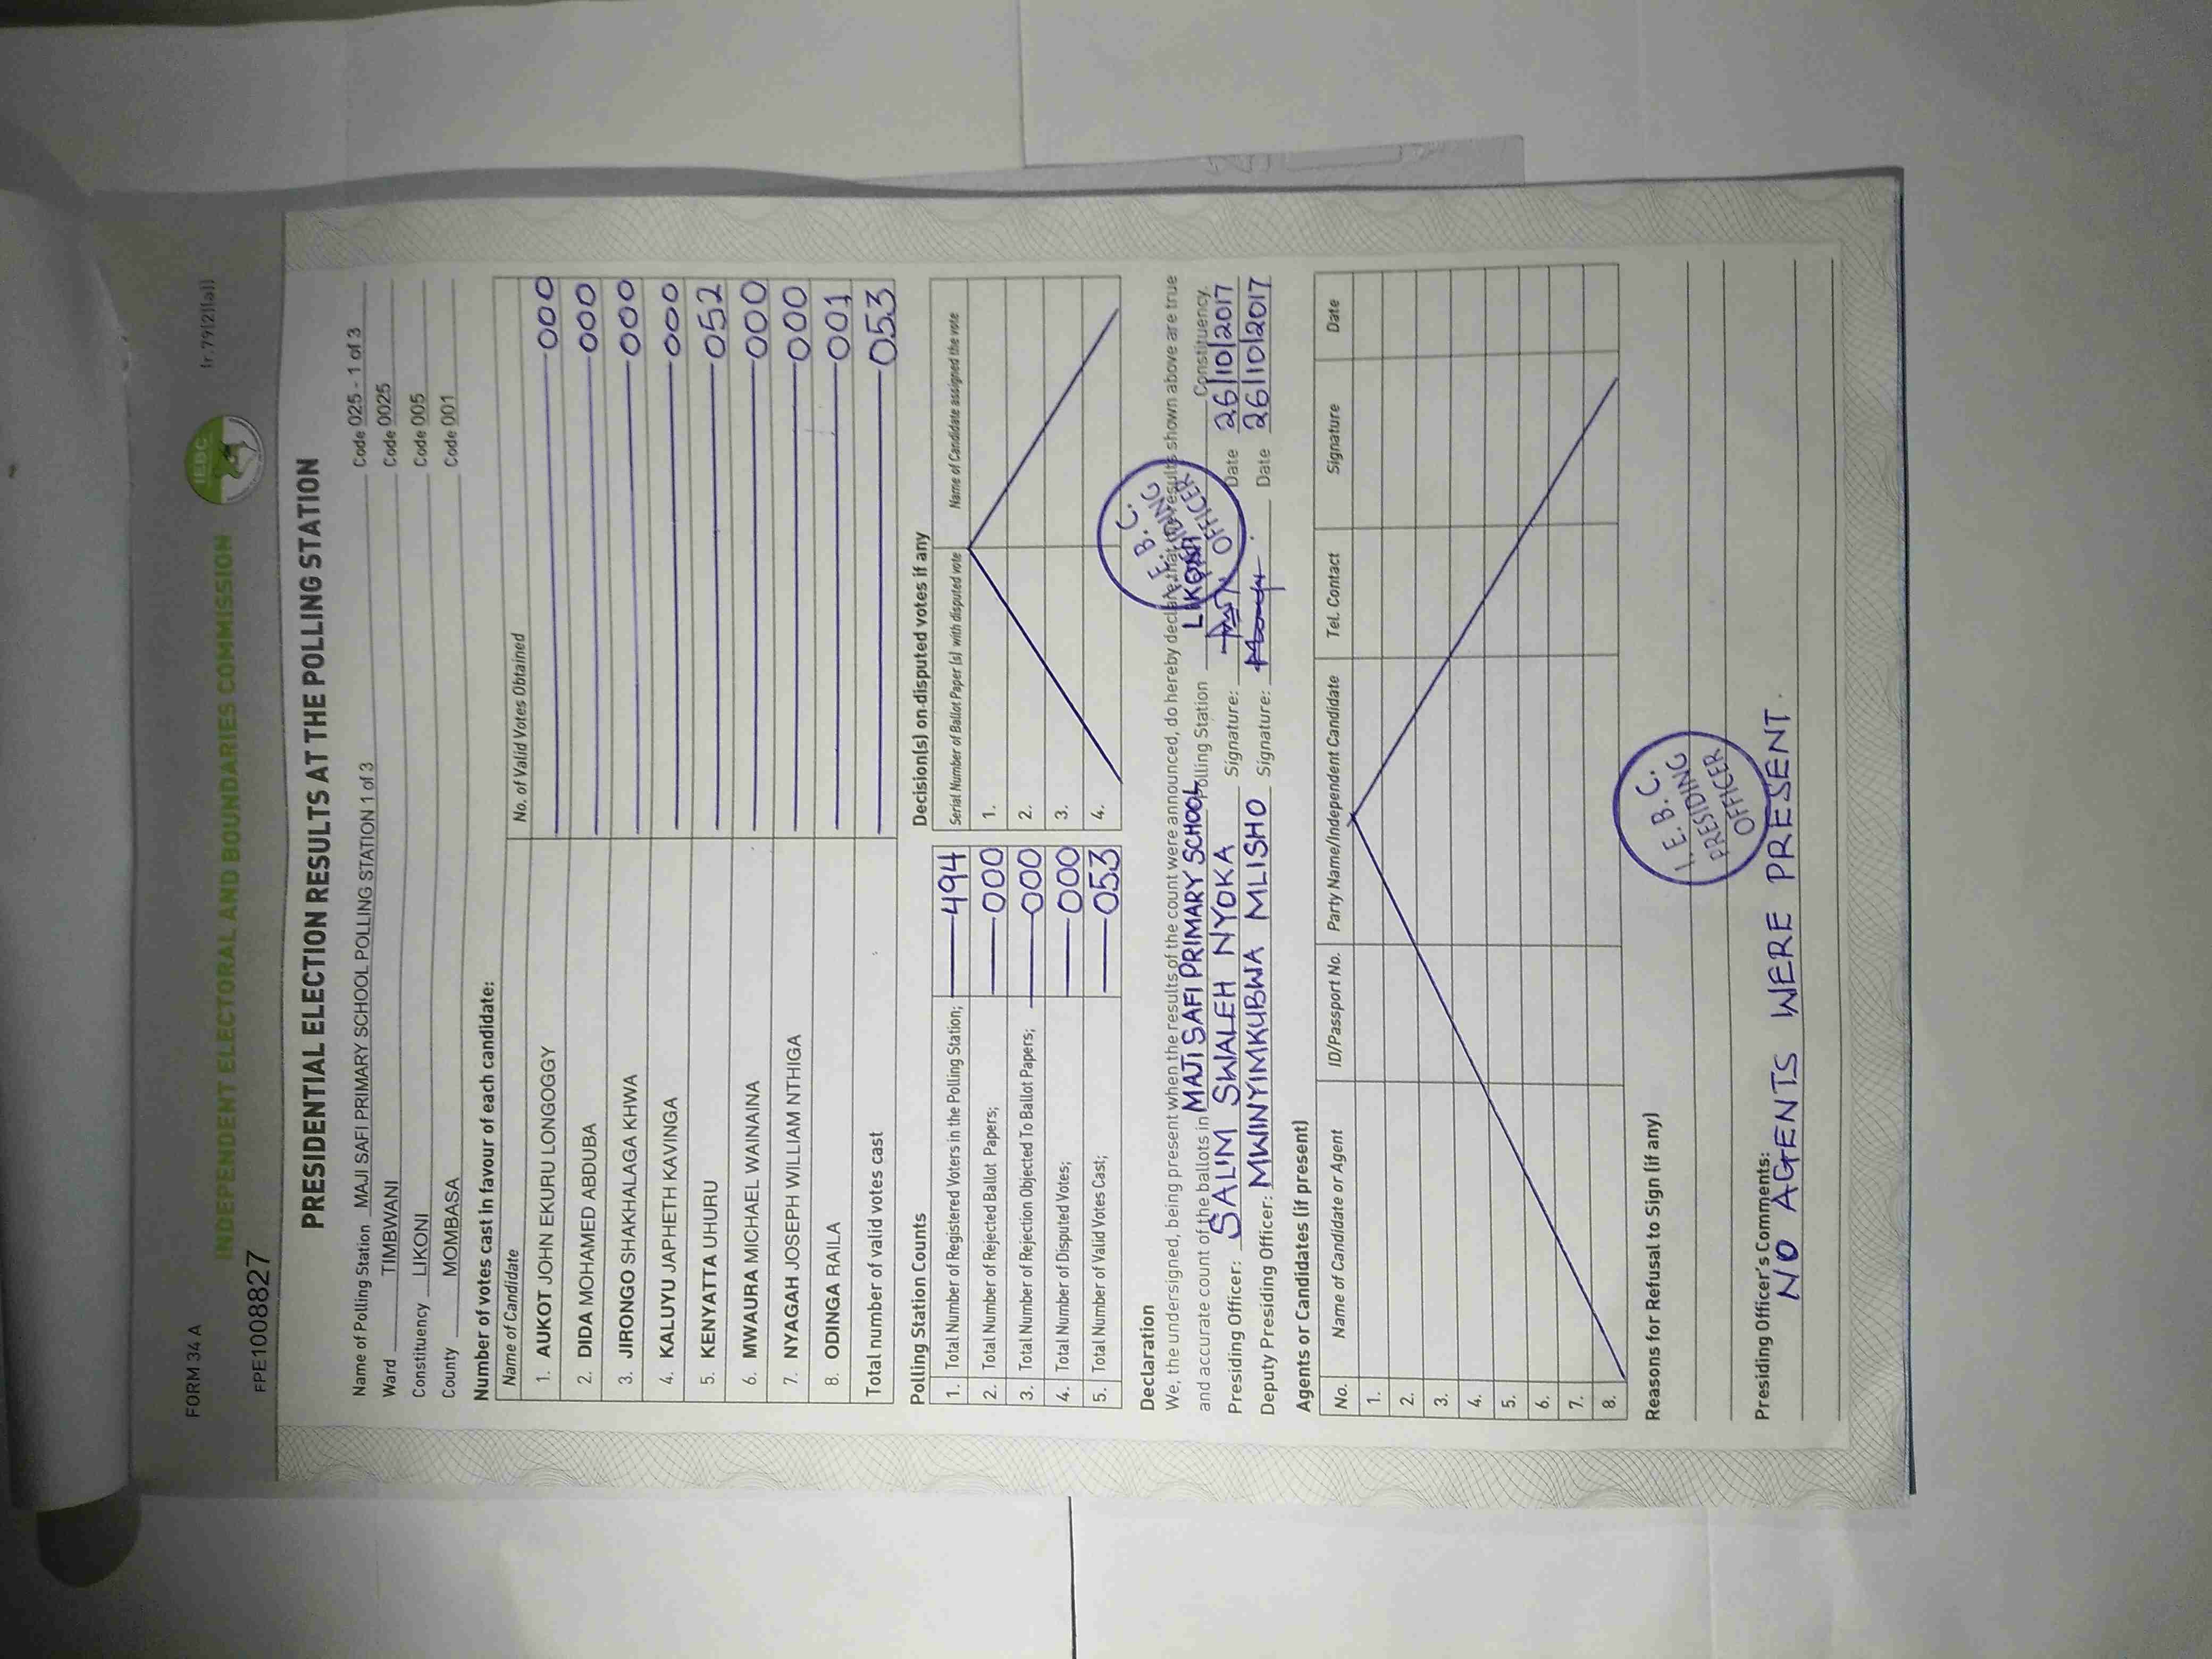 FORM 34 A
INDEPENDENT ELECTORAL AND BOUNDARIES COMMISSION
IEBC
(r.79(2)(a))
FPE1008827
PRESIDENTIAL ELECTION RESULTS AT THE POLLING STATION
Name of Polling Station MAJI SAFI PRIMARY SCHOOL POLLING STATION 1 of 3 Code 025 - 1 of 3
Ward TIMBWANI Code 0025
Constituency LIKONI Code 005
County MOMBASA Code 001
Number of votes cast in favour of each candidate:
Name of Candidate No. of Valid Votes Obtained
1. AUKOT JOHN EKURU LONGOGGY 000
2. DIDA MOHAMED ABDUBA 000
3. JIRONGO SHAKHALAGA KHWA 000
4. KALUYU JAPHETH KAVINGA 000
5. KENYATTA UHURU 052
6. MWAURA MICHAEL WAINAINA 000
7. NYAGAH JOSEPH WILLIAM NTHIGA 000
8. ODINGA RAILA 001
Total number of valid votes cast 053
Polling Station Counts
1. Total Number of Registered Voters in the Polling Station; 494
2. Total Number of Rejected Ballot Papers; 000
3. Total Number of Rejection Objected To Ballot Papers; 000
4. Total Number of Disputed Votes; 000
5. Total Number of Valid Votes Cast; 053
Decision(s) on disputed votes if any
Serial Number of Ballot Paper (s) with disputed vote Name of Candidate assigned the vote
1.
2.
3.
4.
Declaration
We, the undersigned, being present when the results of the count were announced, do hereby declare that the results shown above are true
and accurate count of the ballots in MAJI SAFI PRIMARY SCHOOL Polling Station LIKONI Constituency.
Presiding Officer: SALIM SWALEH NYOKA Signature: Date 26/10/2017
Deputy Presiding Officer: MWINYIMKUBWA MLISHO Signature: Date 26/10/2017
I. E. B. C.
PRESIDING
OFFICER
Agents or Candidates (if present)
No. Name of Candidate or Agent ID/Passport No. Party Name/Independent Candidate Tel. Contact Signature Date
1.
2.
3.
4.
5.
6.
7.
8.
Reasons for Refusal to Sign (if any)
I. E. B. C.
PRESIDING
OFFICER
Presiding Officer's Comments:
NO AGENTS WERE PRESENT.